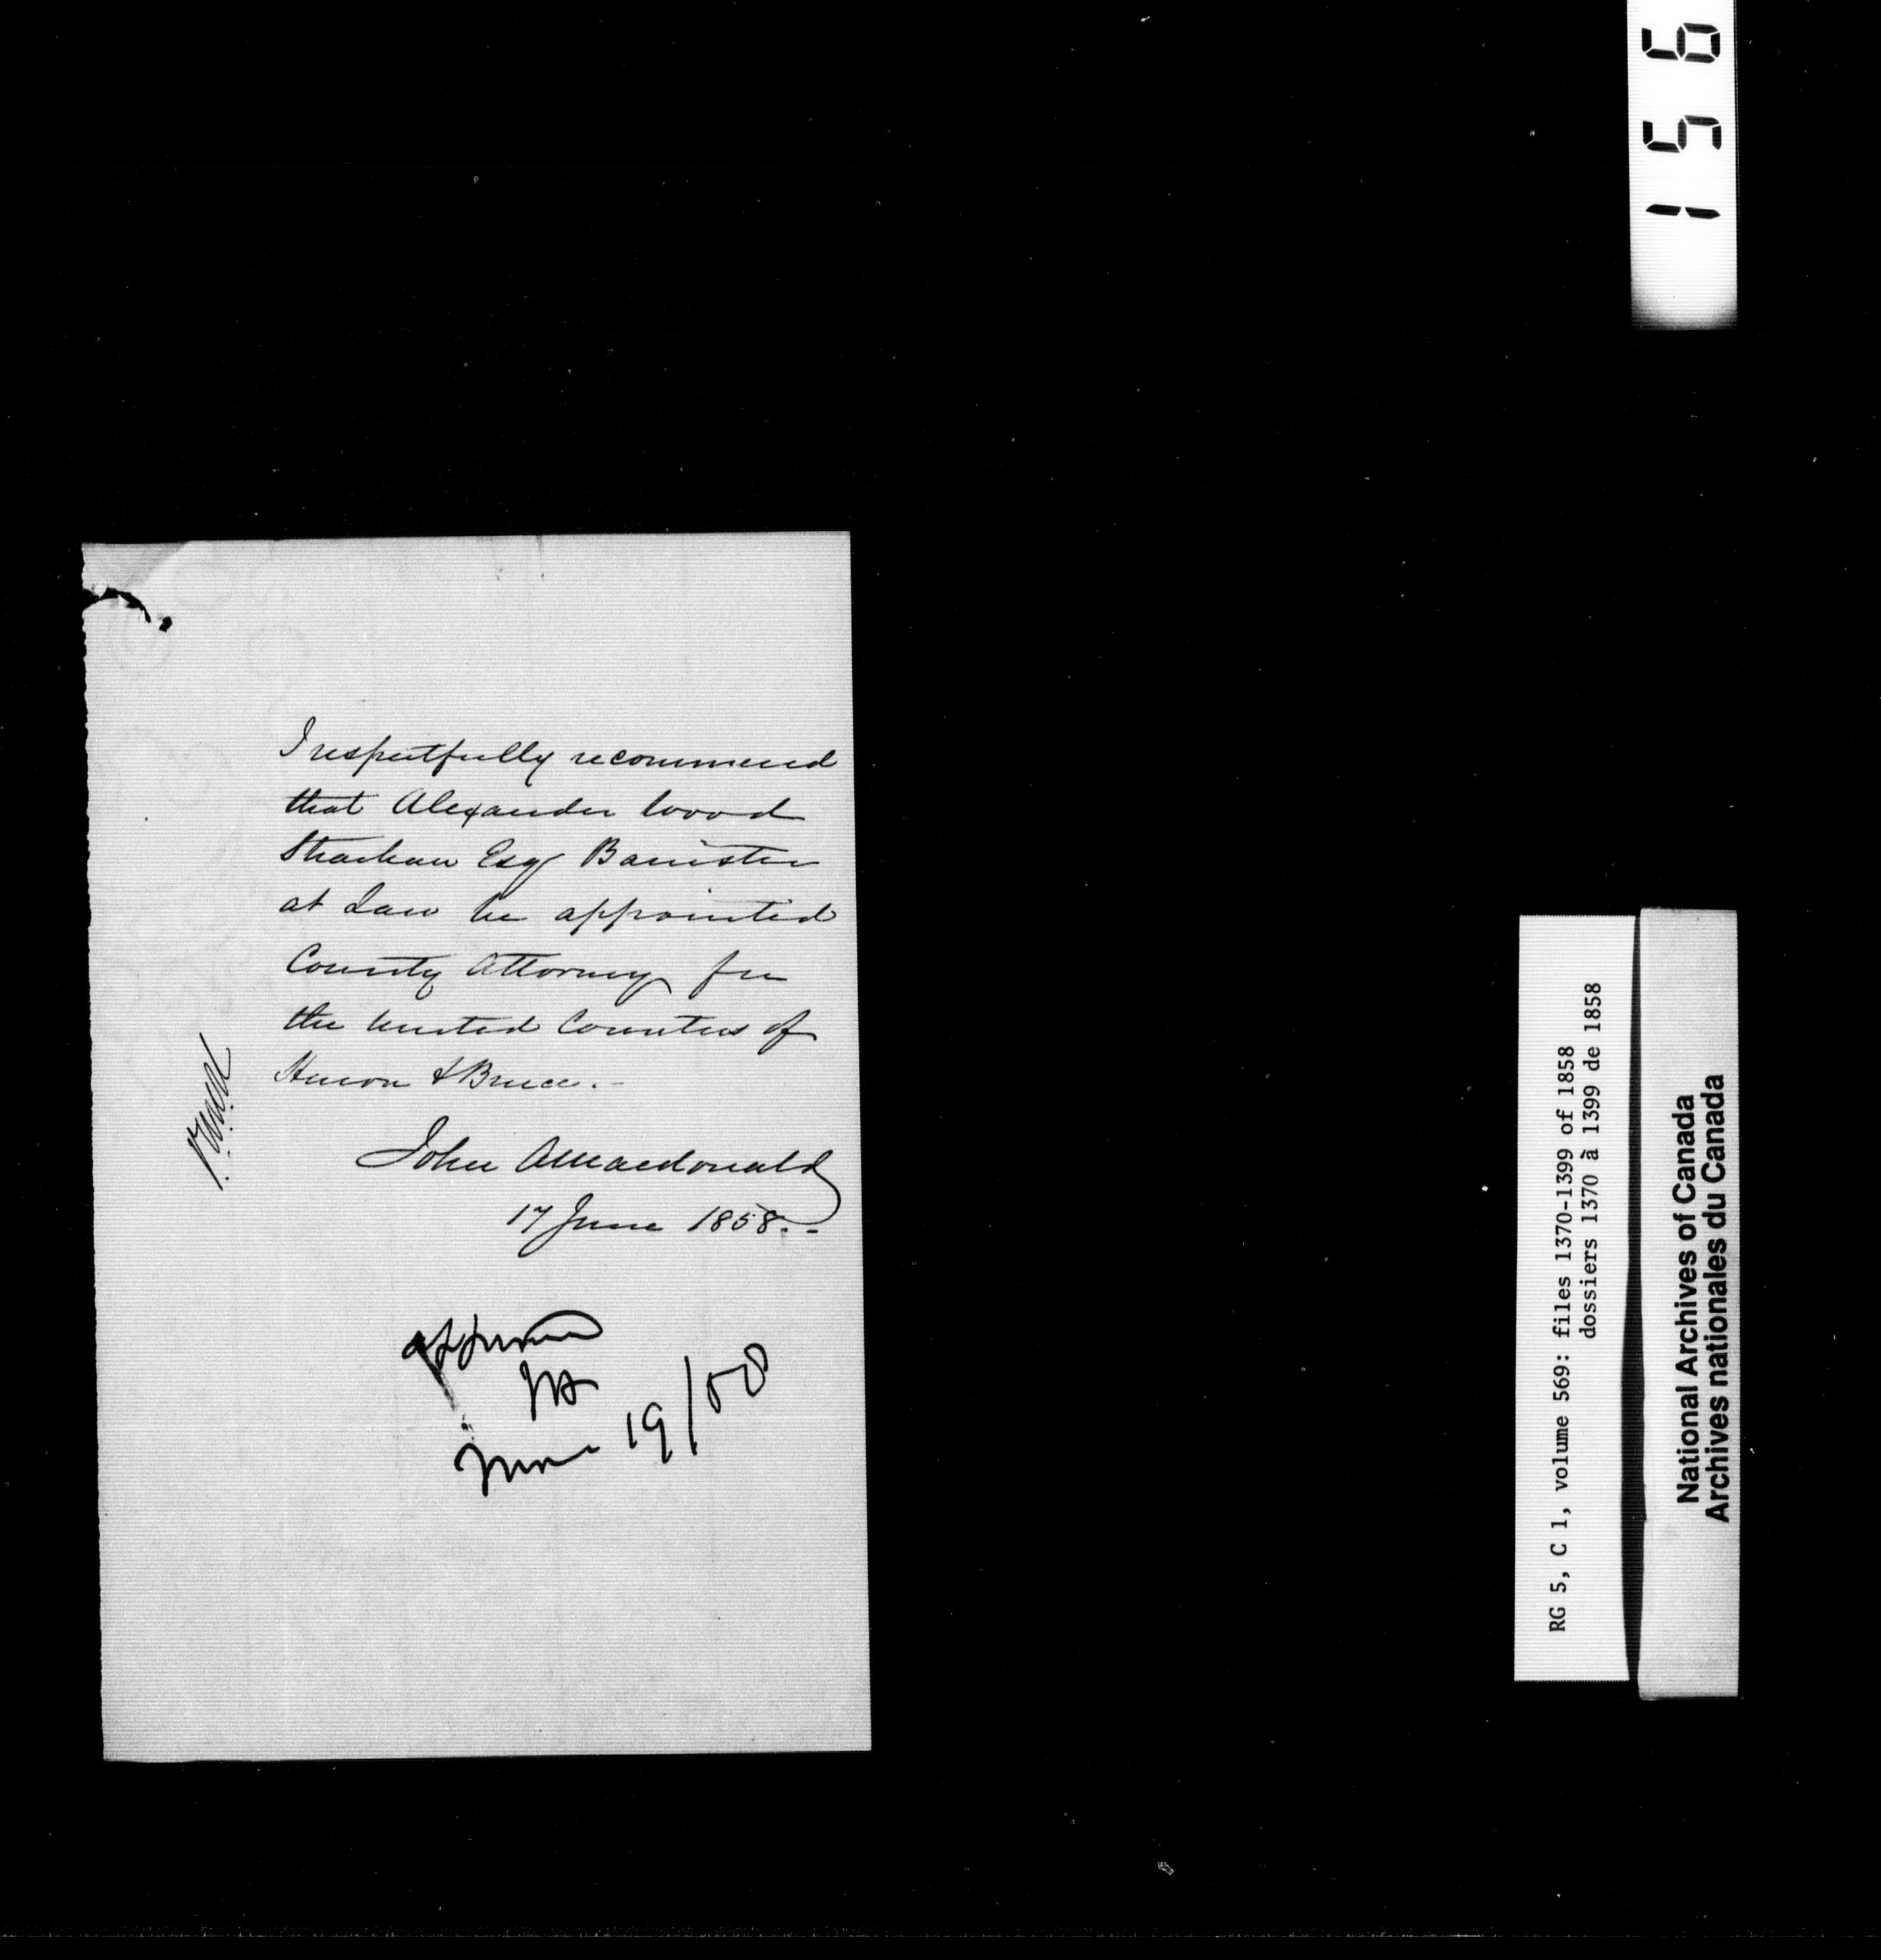 I respectfully recommend
that Alexander Wood
Strachan Esq Barrister
at Law be appointed
County Attorney for
the United Counties of
Huron & Bruce.-
John A Macdonald
17 June 1858.-
Approved
June 19/58
RG 5, C 1, volume 569: files 1370-1399 of 1858
dossiers 1370 à 1399 de 1858
National Archives of Canada
Archives nationales du Canada
156